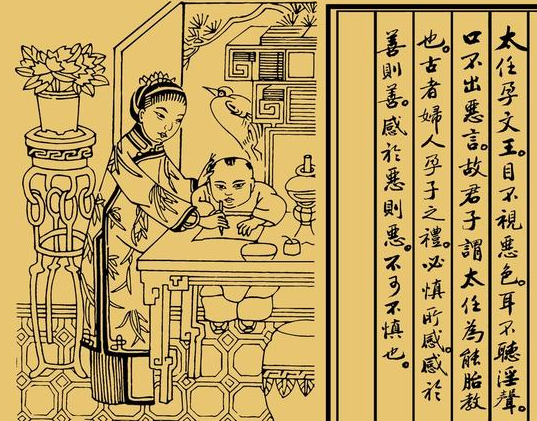 太任孕文王。目不視惡色。耳不聽淫聲。
口不出惡言。故君子謂太任為能胎教
也。古者婦人孕子之禮。必慎所感。感於
善則善。感於惡則惡。不可不慎也。